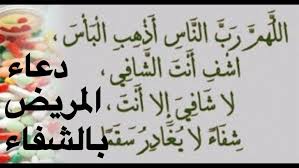 اللَّهُمَّ رَبَّ النَّاسِ أَذْهِبِ الْبَأْسَ،
اشْفِ أَنْتَ الشَّافِي،
لا شَافِيَ إِلا أَنْتَ،
شِفَاءً لا يُغَادِرُ سَقَمًا
دعاء
المريض
بالشفاء